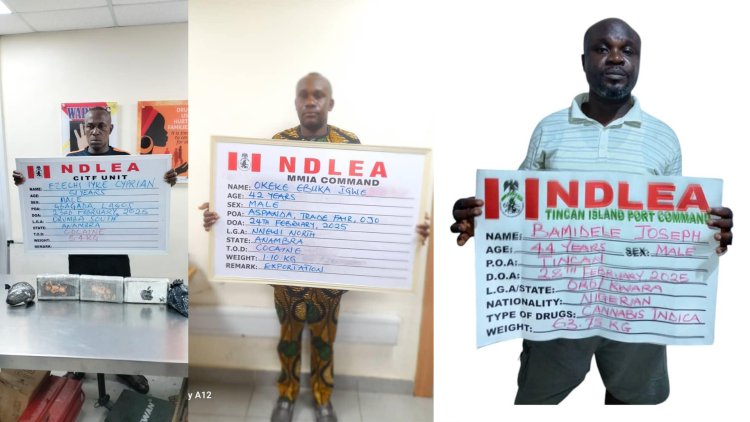 WAR
DRU
USE
HURT
FAMILIES
NDLEA
CITF UNIT
NAME: EZECHI IYKE CYPRIAN
AGE: 50 YEARS
SEX: MALE
POA: LAGOS
DOA: FEBRUARY, 2025
L.G.A: SOUTH
STATE: ANAMBRA
T.O.D: COCAINE
WEIGHT:
REMARK:
NDLEA
MMIA COMMAND
NAME: OKEKE EBUKA IGWE
AGE: 42 YEARS
SEX: MALE
POA: ASPAMDA, TRADE FAIR, OJO
DOA: 24TH FEBRUARY, 2025
L.G.A: NNEWI NORTH
STATE: ANAMBRA
T.O.D: COCAYNE
WEIGHT: 1.10 KG
REMARK: EXPORTATION
y A12
NDLEA
TINCAN ISLAND PORT COMMAND
NAME: BAMIDELE JOSEPH
AGE: 44 YEARS SEX: MALE
P.O.A: TINCAN
D.O.A: 28TH FEBRUARY 2025
L.G.A/STATE: ORO/KWARA
NATIONALITY: NIGERIAN
TYPE OF DRUGS: CANNABIS INDICA
WEIGHT: KG